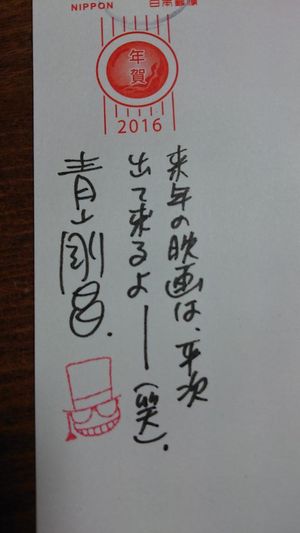 NIPPON 日本郵便
年賀
2016
来年の映画は、平次
出て来るよ——(笑).
青山剛昌.